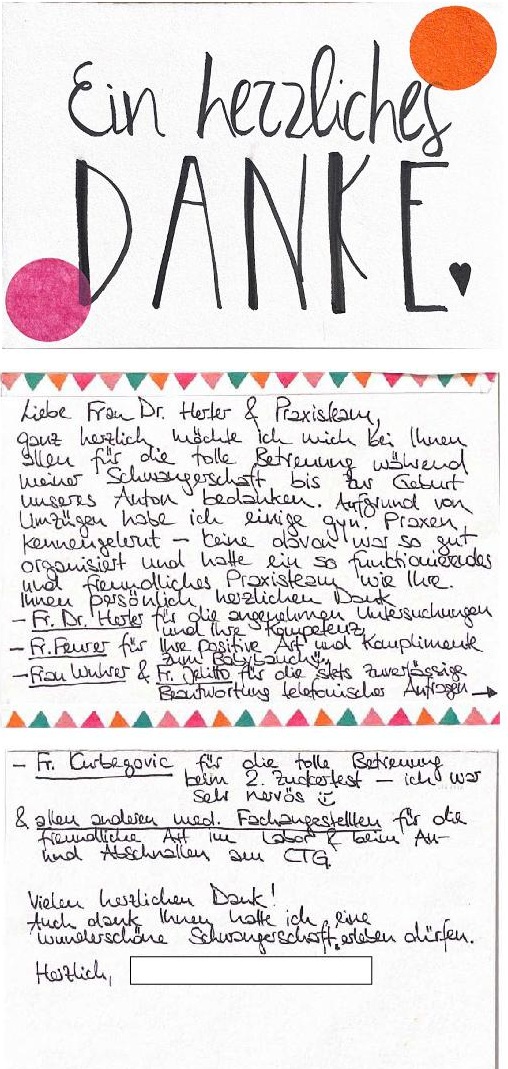 Ein herzliches
DANKE.
Liebe Frau Dr. Herter & Praxisteam,
ganz herzlich möchte ich mich bei Ihnen
allen für die tolle Betreuung während
meiner Schwangerschaft bis zur Geburt
unseres Anton bedanken. Aufgrund von
Umzügen habe ich einige gyn. Praxen
kennengelernt – keine davon war so gut
organisiert und hatte ein so funktionierendes
und freundliches Praxisteam wie Ihre.
Ihnen persönlich herzlichen Dank
– Fr. Dr. Herter für die angenehmen Untersuchungen
und Ihre Kompetenz
– Fr. Feurer für Ihre positive Art und Komplimente
zum "Babybauch"
– Frau Wuhrer & Fr. Delitto für die stets zuverlässige
Beantwortung telefonischer Anfragen →
– Fr. Kurbegovic für die tolle Betreuung
beim 2. Zuckertest – ich war
sehr nervös
& allen anderen med. Fachangestellten für die
freundliche Art im Labor & beim An-
und Abschnallen am CTG.
Vielen herzlichen Dank!
Auch dank Ihnen hatte ich eine
wunderschöne Schwangerschaft erleben dürfen.
Herzlich,